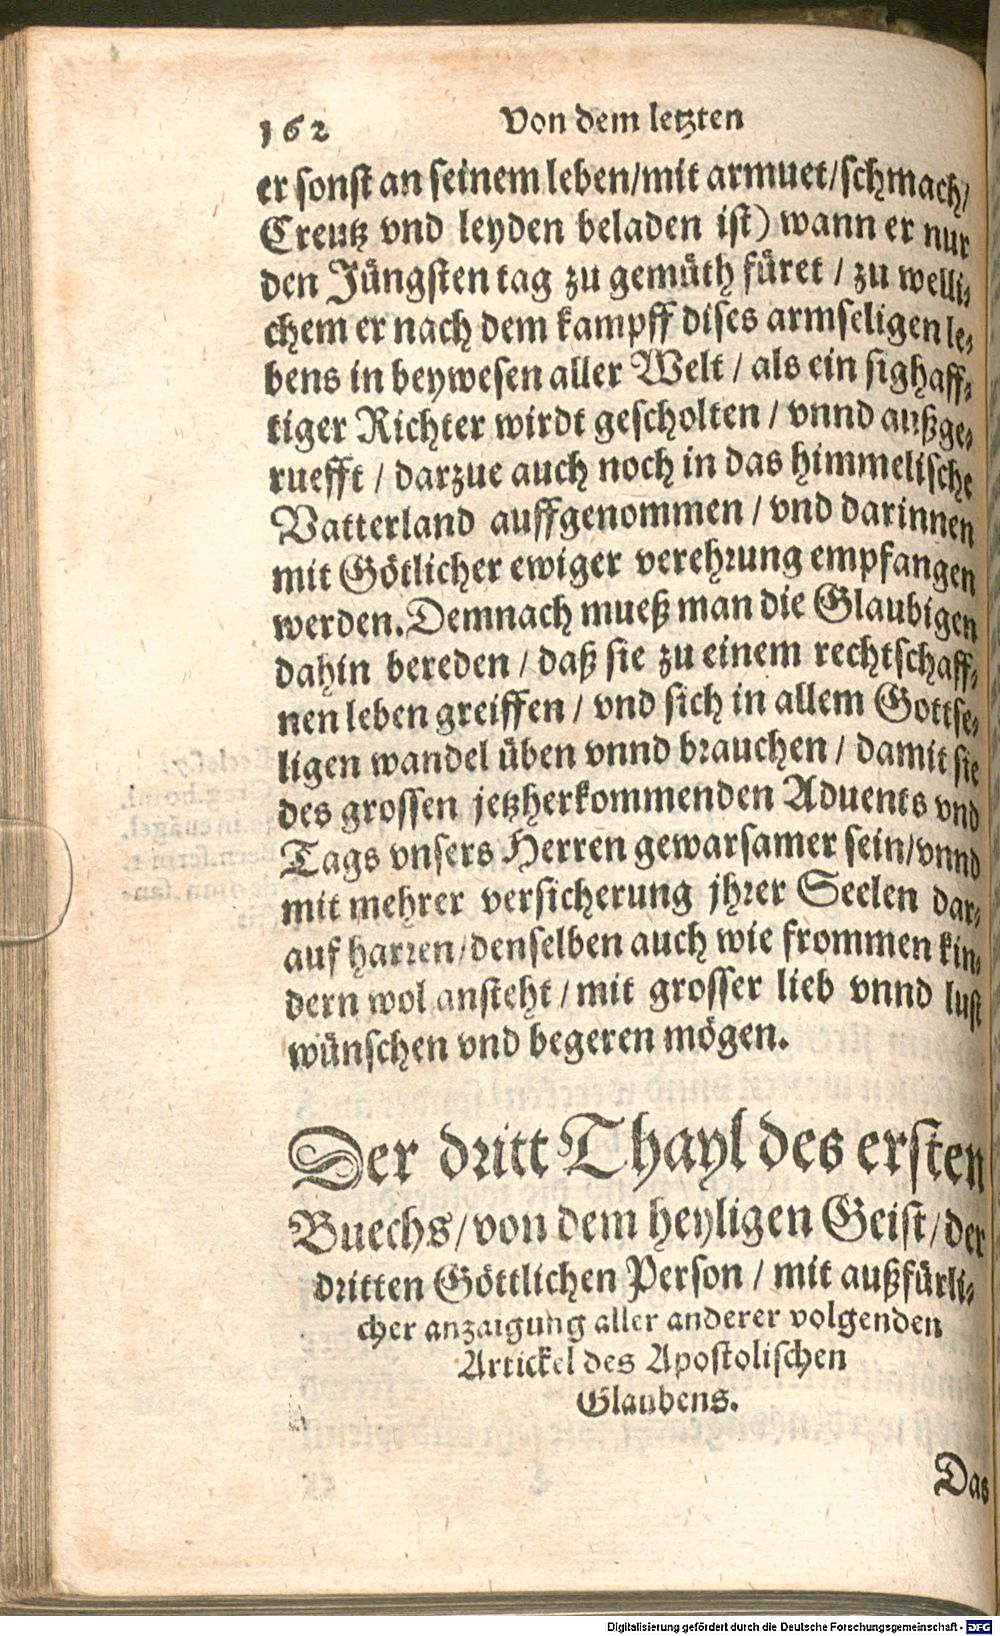 162 Von dem letzten
er sonst an seinem leben/mit armuet/schmach/
Creutz vnd leyden beladen ist) wann er nur
den Jüngsten tag zu gemüth füret / zu welli-
chem er nach dem kampff dises armseligen le-
bens in beywesen aller Welt / als ein sighaff-
tiger Richter wirdt gescholten / vnnd außge-
ruefft / darzue auch noch in das himmelische
Vatterland auffgenommen / vnd darinnen
mit Götlicher ewiger verehrung empfangen
werden. Demnach mueß man die Glaubigen
dahin bereden / daß sie zu einem rechtschaff-
nen leben greiffen / vnd sich in allem Gottse-
ligen wandel üben vnnd brauchen / damit sie
des grossen jetzherkommenden Aduents vnd
Tags vnsers Herren gewarsamer sein/vnnd
mit mehrer versicherung jhrer Seelen dar-
auf harren/denselben auch wie frommen kin-
dern wol ansteht / mit grosser lieb vnnd lust
wünschen vnd begeren mögen.
Der dritt Thayl des ersten
Buechs/von dem heyligen Geist/der
dritten Göttlichen Person / mit außfürli-
cher anzaigung aller anderer volgenden
Artickel des Apostolischen
Glaubens.
Das
Digitalisierung gefördert durch die Deutsche Forschungsgemeinschaft - DFG